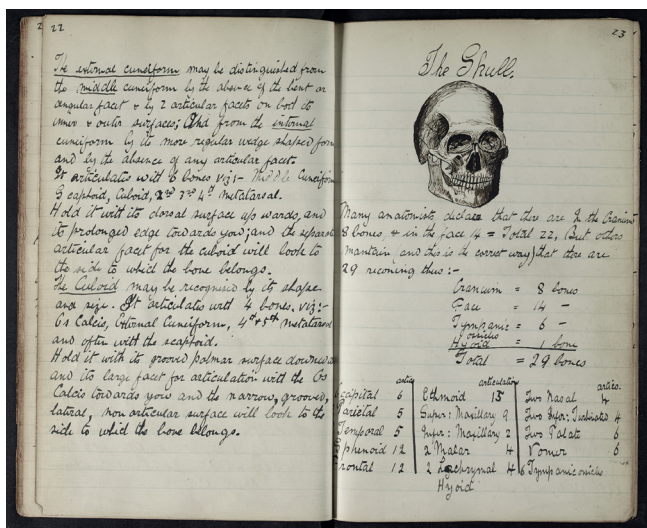 22
The external cuneiform may be distinguished from
the middle cuneiform by the absence of the bent or
angular facet & by 2 articular facets on both its
inner & outer surfaces; And from the internal
cuneiform by its more regular wedge shaped form
and by the absence of any articular facet.
It articulates with 6 bones viz:- Middle Cuneiform
Scaphoid, Cuboid, 2nd 3rd 4th Metatarsal.
Hold it with its dorsal surface upwards, and
its prolonged edge towards you; and the separate
articular facet for the cuboid will look to
the side to which the bone belongs.
The Cuboid may be recognised by its shape
and size. It articulates with 4 bones. viz:-
Os Calcis, External Cuneiform, 4th & 5th metatarsal
and often with the scaphoid.
Hold it with its grooved polmar surface downwards
and its large facet for articulation with the Os
Calcis towards you and the narrow, grooved,
lateral, non articular surface will look to the
side to which the bone belongs.
23
The Skull.
Many anatomists declare that there are In the Cranium
8 bones, & in the face 14 = Total 22, But others
mantain (and this is the correct way) that there are
29 reconing thus:-
Cranium = 8 bones
Face = 14 -
Tympanic = 6 -
ossicles
Hyoid = 1 bone
Total = 29 bones
artics articulation artics.
Occipital 6 Ethmoid 15 Two Nasal 4
Parietal 5 Super: Maxillary 9 Two Infer: Turbinated 4
Temporal 5 Infer: Maxillary 2 Two Palate 6
Sphenoid 12 2 Malar 4 Vomer 6
Frontal 12 2 Lachrymal 4 6 Tympanic ossicles
Hyoid